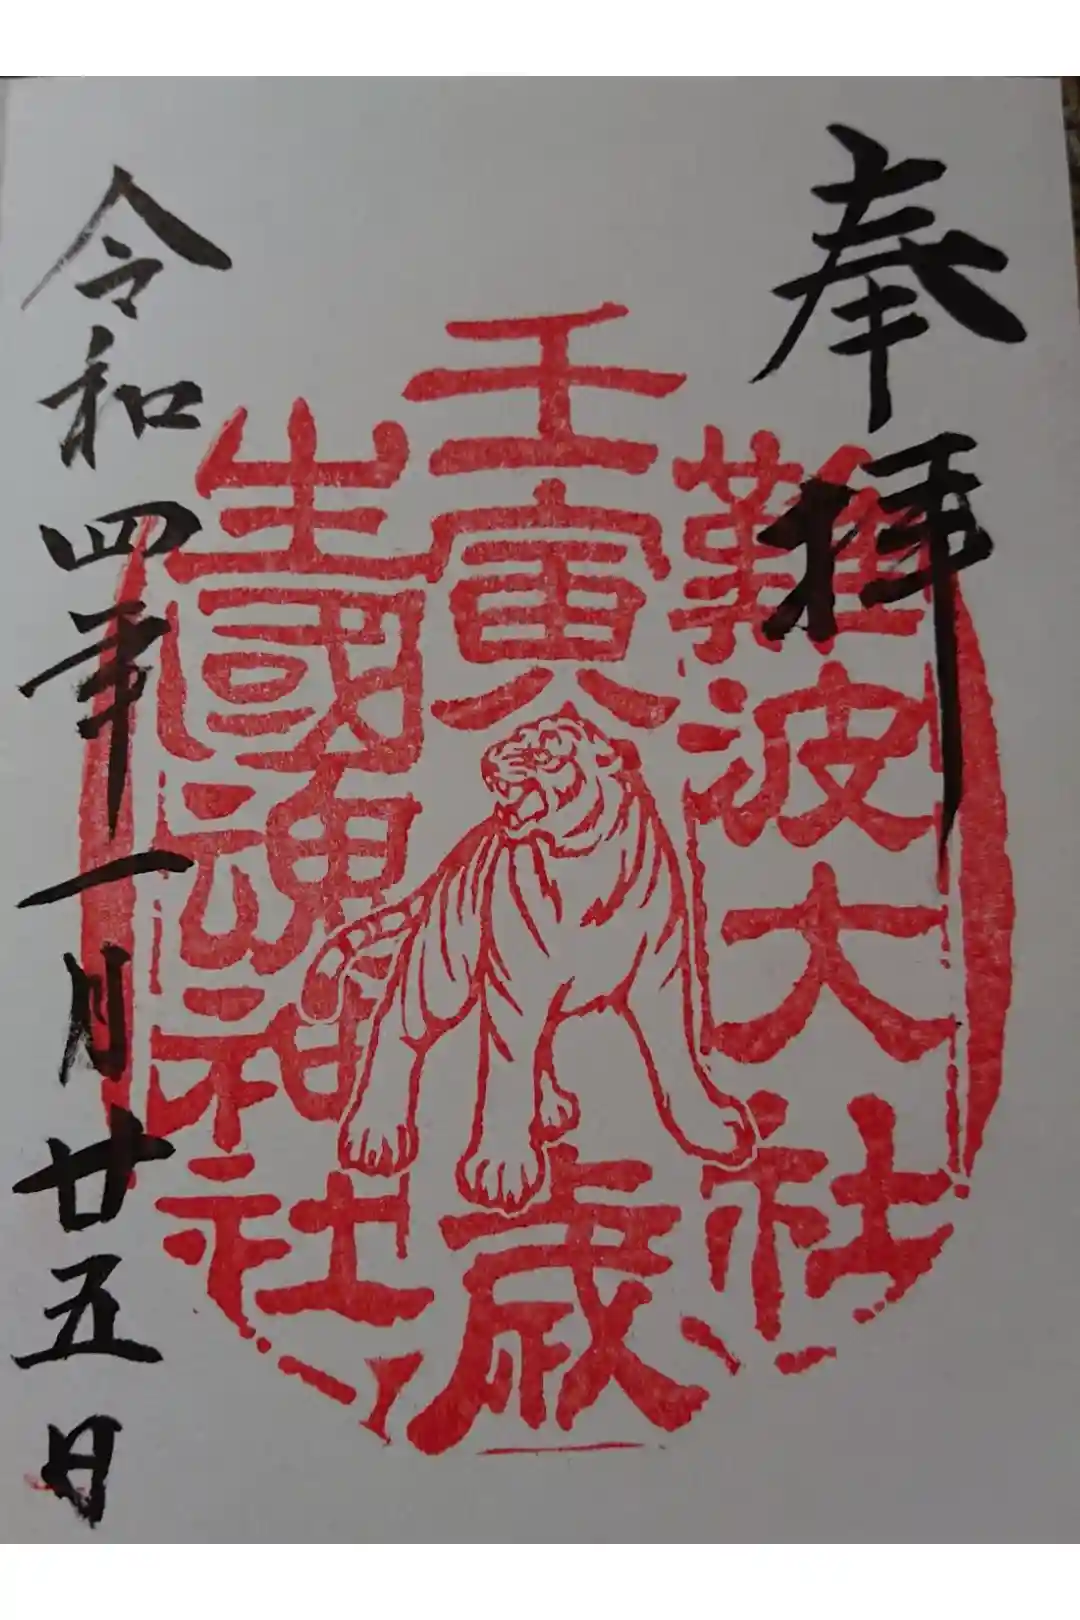 奉拝
難波大社
壬寅
歳
生國魂神社
令和四年一月廿五日